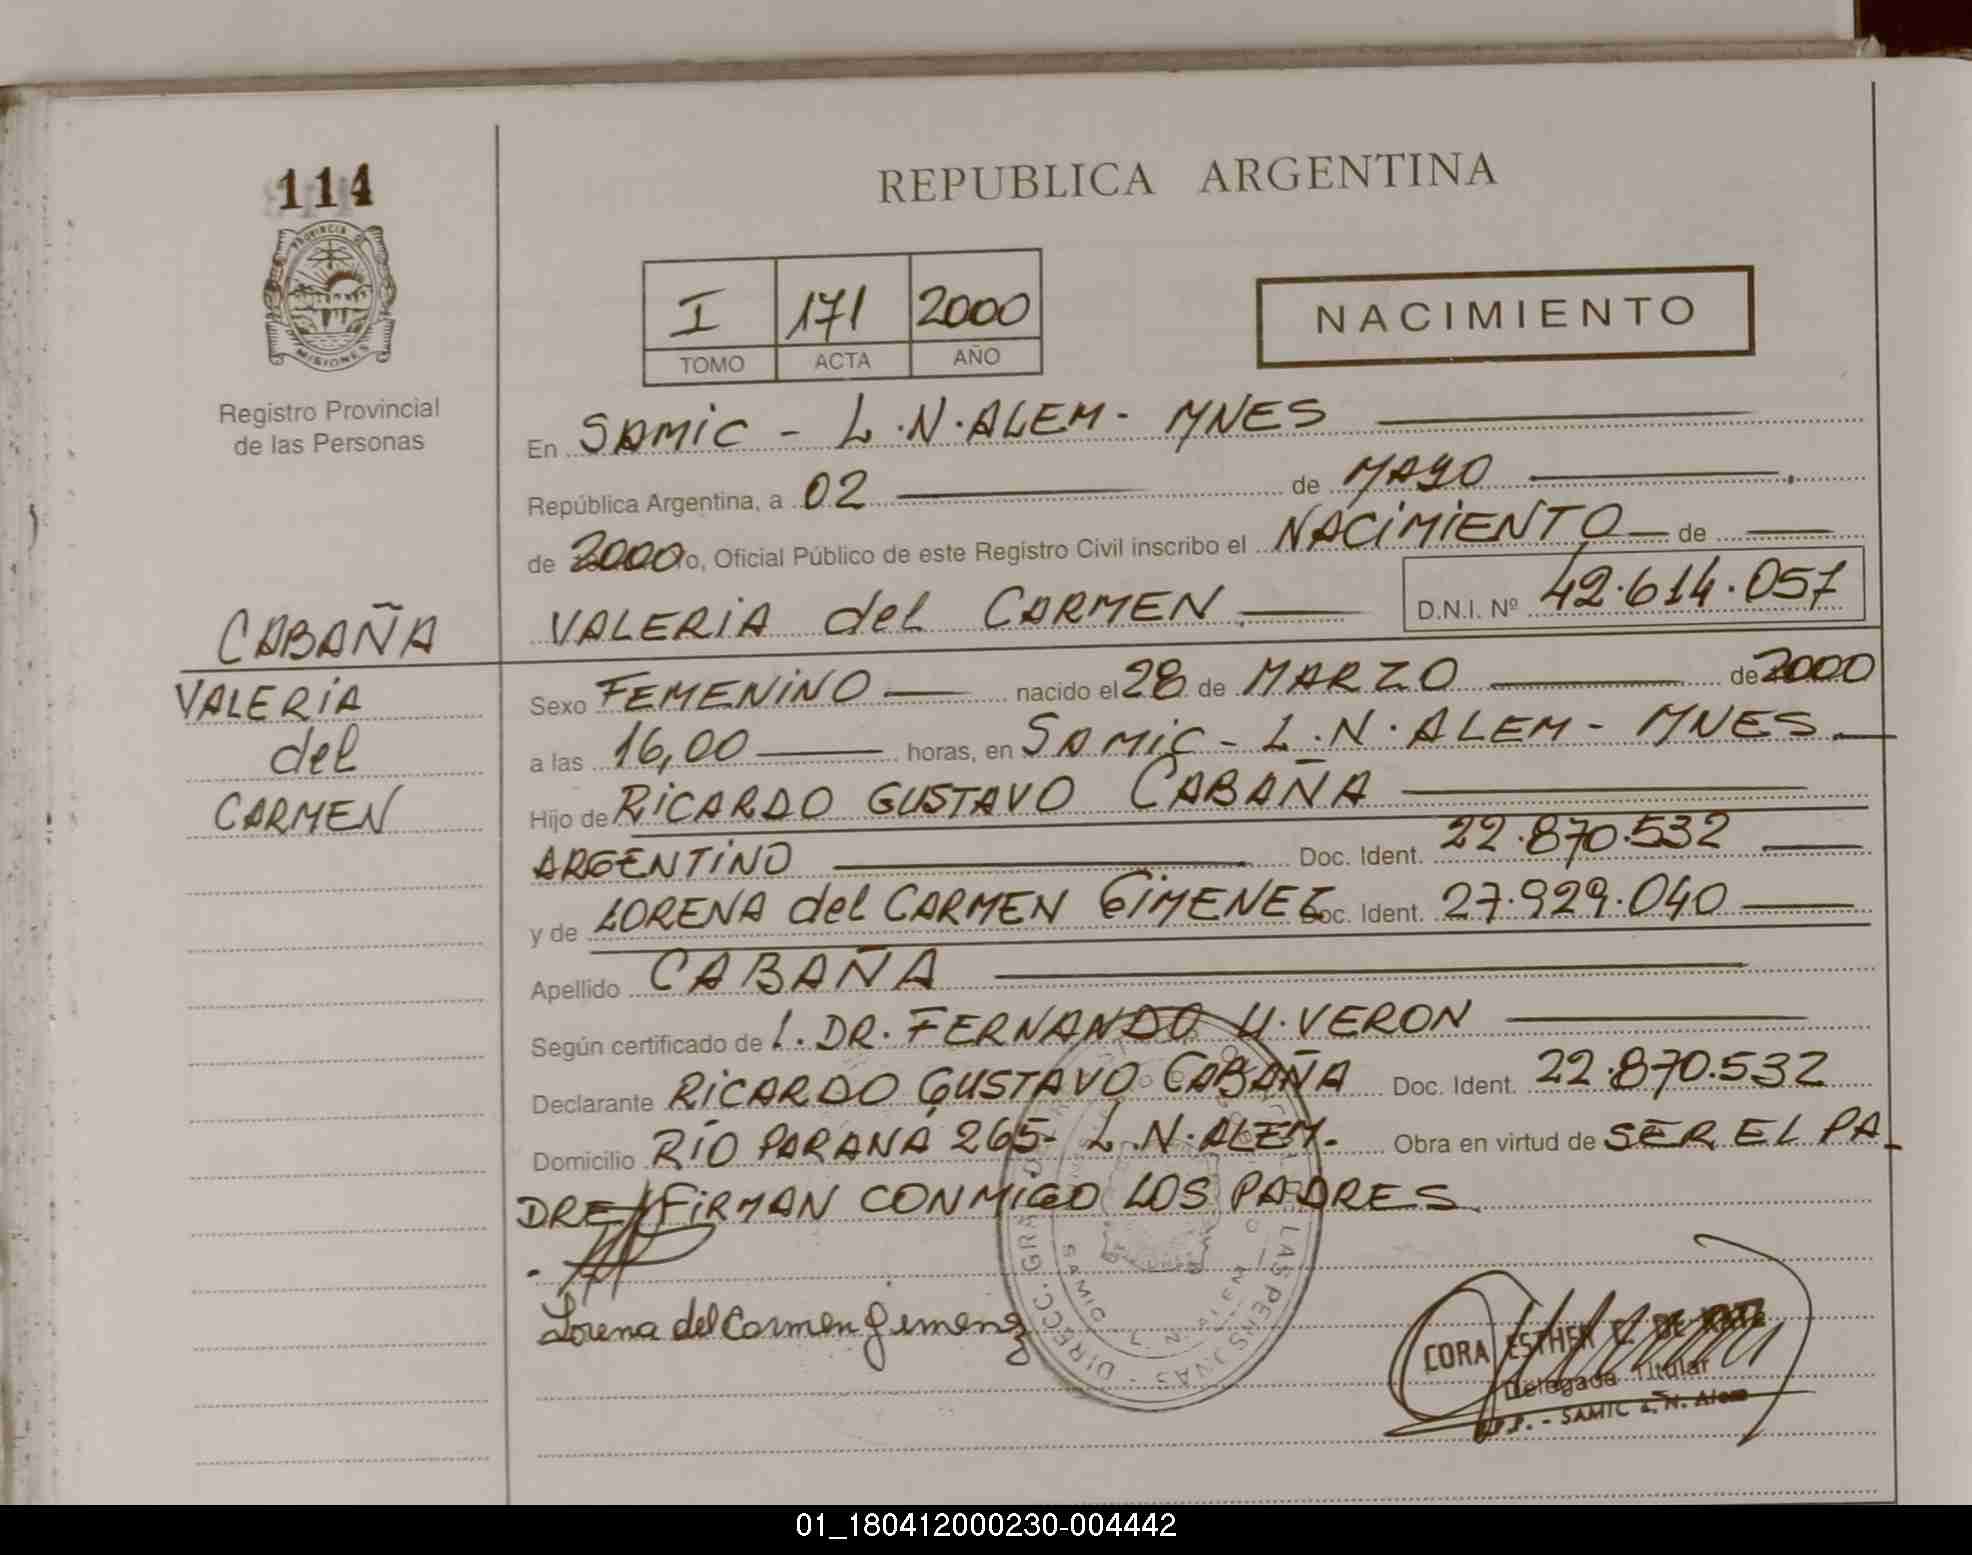 114
PROVINCIA DE
MISIONES
Registro Provincial
de las Personas
REPUBLICA ARGENTINA
I 171 2000
TOMO ACTA AÑO
NACIMIENTO
En SAMIC - L.N.ALEM- MNES
República Argentina, a 02 de MAYO
de 2000 o, Oficial Público de este Registro Civil inscribo el NACIMIENTO de
VALERIA del CARMEN D.N.I. Nº 42.614.057
CABAÑA
VALERIA
del
CARMEN
Sexo FEMENINO nacido el 28 de MARZO de 2000
a las 16,00 horas, en SAMIC - L.N.ALEM - MNES
Hijo de RICARDO GUSTAVO CABAÑA
ARGENTINO Doc. Ident. 22.870.532
y de LORENA del CARMEN GIMENEZ Doc. Ident. 27.929.040
Apellido CABAÑA
Según certificado de L. DR. FERNANDO U. VERON
Declarante RICARDO GUSTAVO CABAÑA Doc. Ident. 22.870.532
Domicilio RIO PARANA 265- L.N.ALEM. Obra en virtud de SER EL PA_
DRE// FIRMAN CONMIGO LOS PADRES.
Lorena del Carmen Gimenez
DIRECC. GRAL LAS PERSONAS
SAMIC
CORA ESTHER DE
Delegada Titular
SAMIC L. N. Alem
01_180412000230-004442